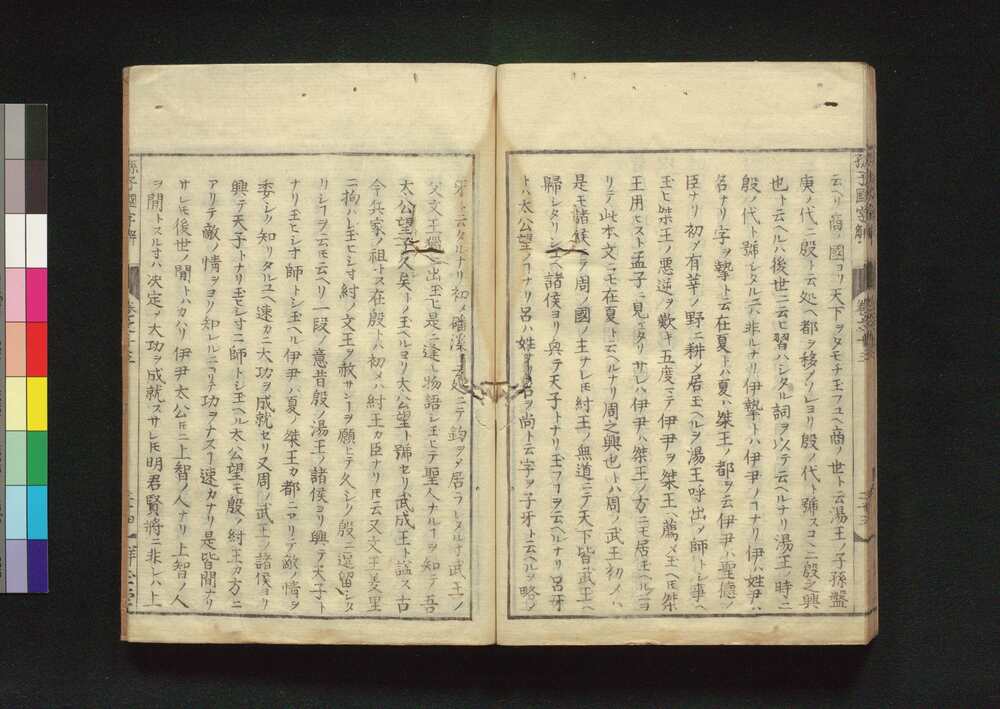 云ヘリ商ノ國ヨリ天下ヲタモチ玉フユヘ商ノ世ト云湯王ノ子孫盤
庚ノ代ニ殷ト云処ヘ都ヲ移ノソレヨリ殷ノ代ト號スコヽニ殷之興
也ト云ヘルハ後世ニ云ヒ習ハシタル詞ヲ以テ云ヘルナリ湯王ノ時ニ
殷ノ代ト號シタルニハ非ルナリ伊摯トハ伊尹ノコナリ伊ハ姓尹ハ
名ナリ字ヲ摯ト云在夏トハ夏ハ桀王ノ都ヲ云伊尹ハ聖德ノ
臣ナリ初メ有莘ノ野ニ耕メ居玉ヘルヲ湯王呼出メ師トシ事ヘ
玉ヒ桀王ノ悪逆ヲ歎キ五度マテ伊尹ヲ桀王ヘ薦メ玉ヘ𪜈桀
王用ヒスト孟子ニ見ヱタリサレハ伊尹ハ桀王ノ方ニモ居玉ヘルコヲ
リテ此本文ニモ在夏ト云ヘルナリ周之興也トハ周ノ武王初メハ
是モ諸侯ニテ周ノ國ノ主タレ𪜈紂王ノ無道ニテ天下皆武王ヘ
歸シタリシユヘ諸侯ヨリ興テ天子トナリ玉フコヲ云ヘルナリ呂牙
トハ太公望ノコナリ呂ハ姓ナリ名ヲ尚ト云字ヲ子牙ト云ヘルヲ略メ
牙ト云タルナリ初メ磻溪ト云処ニテ釣ヲメ居ラレタル寸武王ノ
父文王獵ニ出玉ヒ是ニ逢テ物語シ玉ヒテ聖人ナルコヲ知テ吾
太公望子久矣トノ玉ヘルヨリ太公望ト號セリ武成王ト諡ス古
今兵家ノ祖トス在殷トハ初メハ紂王カ臣ナリ𪜈云又文王羑里
ニ拘ハレ玉ヒシ寸紂ノ文王ヲ赦サンコヲ願ヒテ久シク殷ニ逗留シタ
リシコヲ云𪜈云ヘリ一段ノ意昔殷ノ湯王ノ諸侯ヨリ興テ天子ト
ナリ玉ヒシ寸師トシ玉ヘル伊尹ハ夏ノ桀王カ都ニアリテ敵情ヲ
委シク知リタルユヘ速カニ大功ヲ成就セリ又周ノ武王ノ諸侯ヨリ
興テ天子トナリ玉ヒシ寸ニ師トシ玉ヘル太公望モ殷ノ紂王カ方ニ
アリテ敵ノ情ヲヨク知レルニヨリテ功ヲナスコ速カナリ是皆間ナリ
サレ𪜈後世ノ間トハカハリ伊尹太公𪜈ニ上智ノ人ナリ上智ノ人
ヲ間トスル寸ハ決定メ大功ヲ成就スサレ𪜈明君賢將ニ非レハ上
孫子國字解
卷之十三